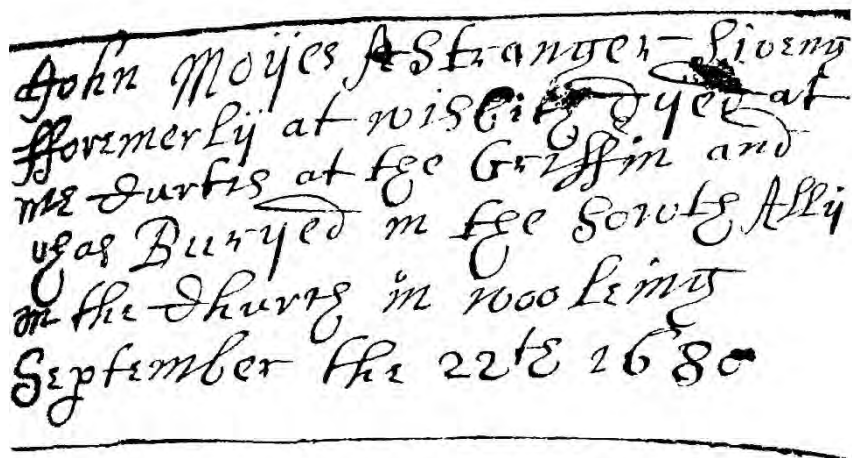 John Moÿes A Stranger Liveng
fforemerlÿ at wisbitg dÿed at
mr Curtis at the Griffin and
was Burÿed in the South Allÿ
in the Church in wooleing
September the 22th 1680